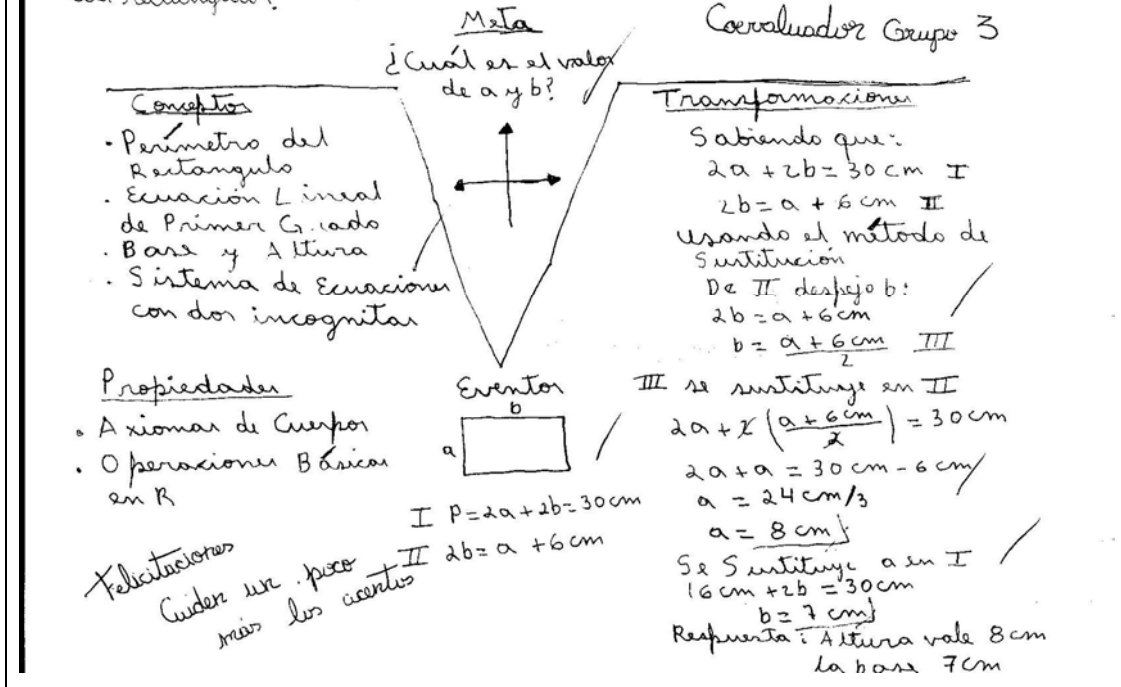 Meta
Coevaluador Grupo 3
¿Cuál es el valor
de a y b?
Conceptos
· Perímetro del
Rectangulo
· Ecuación Lineal
de Primer Grado
· Base y Altura
· Sistema de Ecuaciones
con dos incognitas
Propiedades
· Axiomas de Cuerpos
· Operaciones Básicas
en R
Felicitaciones
Cuiden un poco
más los acentos
Eventos
b
a
I P=2a+2b=30cm
II 2b=a+6cm
Transformaciones
Sabiendo que:
2a+2b=30cm I
2b=a+6cm II
usando el método de
Sustitución
De II despejo b:
2b=a+6cm
b=a+6cm III
2
III se sustituye en II
2a+2(a+6cm/2)=30cm
2a+a=30cm-6cm
a=24cm/3
a=8cm
Se Sustituye a en I
16cm+2b=30cm
b=7cm
Respuesta: Altura vale 8cm
la base 7cm